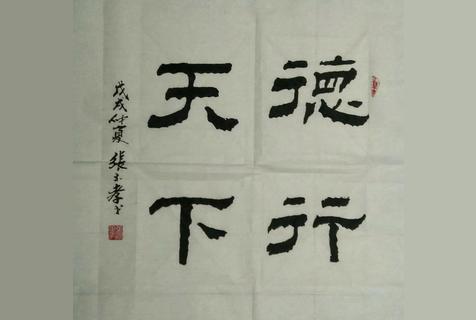 德行
天下
戊戌仲夏 張玉孝书